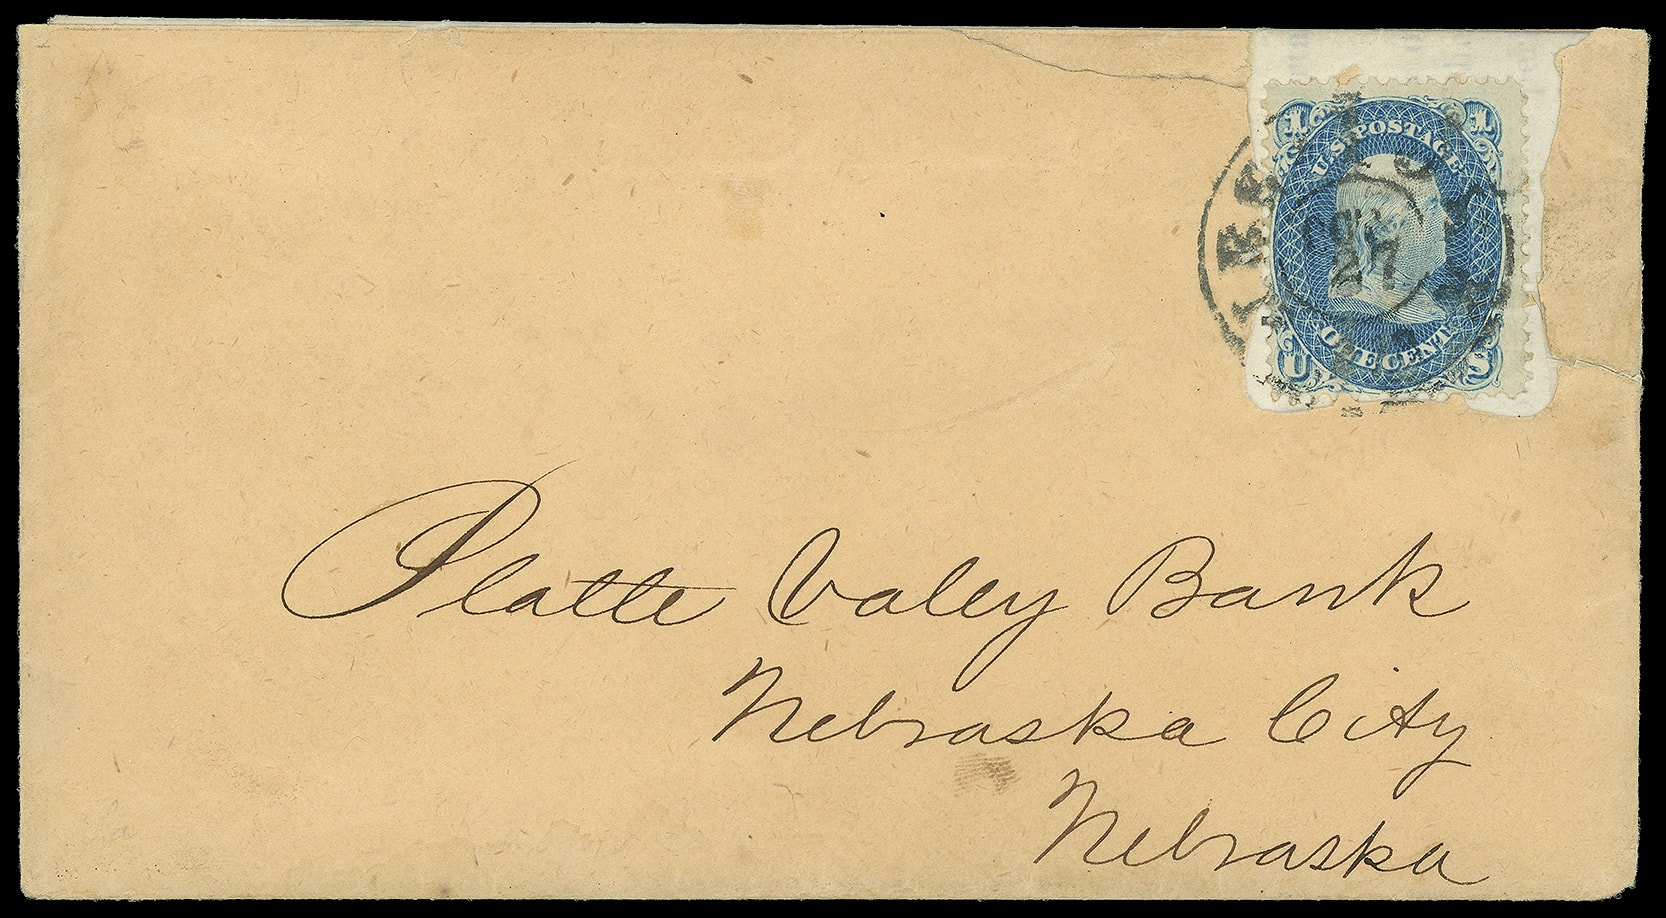 1 1
U.S. POSTAGE
DEC
27
ONE CENT
U S
Platte Valey Bank
Nebraska City
Nebraska